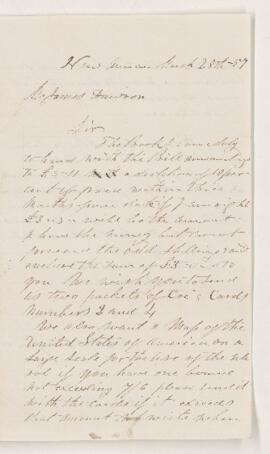 March 28th - 57
Mr James Dawson
Sir
The Books came duly
to hand with the Bill amounting
to £3-11 a deduction of 10 per
cent if paid within three
Months from date if I am right
£3 would be the amount
I have the money but cannot
procure the odd shillings and
enclose the sum of £3 to
you We wish you to send
us two packets of Cards
Numbers 3 and 4
We also want a Map of the
United States of America on a
large Scale for the use of the sch
ool if you have one bound
not exceeding 7/6 please send it
with the cards if it exceeds
that amount write when